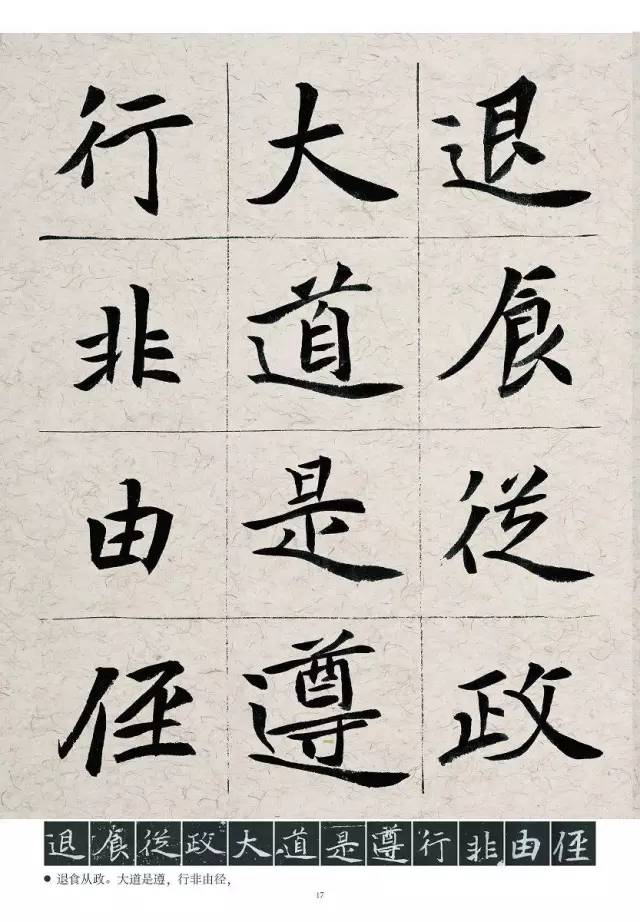 退食從政
大道是遵
行非由徑
退食從政大道是遵行非由徑
● 退食从政。大道是遵，行非由径，
17